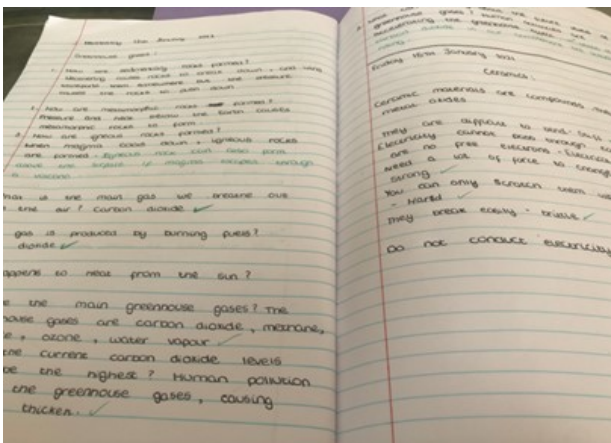 Greenhouse gases:
1. How are sedimentary rocks formed?
Weathering causes rocks to break down, and wind
causes the rocks to push down
2. How are metamorphic rocks formed?
Pressure and heat the Earth causes
metamorphic rocks to form.
3. How are igneous rocks formed?
When magma cools down, igneous rocks
are formed. Igneous rock can also form
above the surface if magma escapes through
a volcano.
hat is the main gas we breathe out
the air? Carbon dioxide
gas is produced by burning fuels?
dioxide
appens to heat from the sun?
e the main greenhouse gases? The
house gases are carbon dioxide, methane,
e, ozone, water vapour
the current carbon dioxide levels
be the highest? Human pollution
the greenhouse gases, causing
thicken.
greenhouse gases? Human
accelerating the greenhouse
Friday 15th January 2021
Ceramics.
Ceramic materials are compounds
metal oxides
They are difficult to bend. Stiff
Electricity cannot pass through
are no free electrons.
Need a lot of force to
strong
You can only scratch them
- Hard
They break easily - brittle
Do not conduct electricity